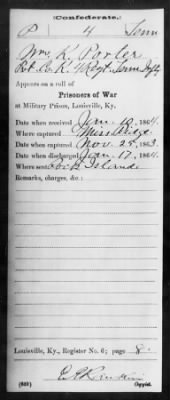 (Confederate.)
P 4 Tenn
Wm. K. Porter
Pvt. Co. K. 4 Regt. Tenn Infty
Appears on a roll of
Prisoners of War
at Military Prison, Louisville, Ky.
Date when received Jan. 16, 1864
Where captured Miss. Ridge
Date when captured Nov. 25, 1863.
Date when discharged Jan. 17, 1864.
Where sent Rock Island
Remarks, charges, &c.:
Louisville, Ky., Register No. 6; page 8
Copyist.